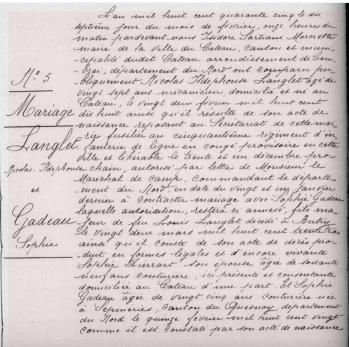 L'an mil huit cent quarante cinq le dix
septième jour du mois de février, onze heures du
matin pardevant nous Isidore
maire de la ville du Cateau, canton et muni-
cipalité dudit Cateau arrondissement de Cam-
brai, département du Nord ont comparu pu-
bliquement Nicolas Ildephonse Langlet âgé de
vingt sept ans mécanicien domicilié et né au
Cateau, le vingt deux février mil huit cent
dix huit ainsi qu'il résulte de son acte de
naissance reposant au Secrétariat de cette mai-
rie fusilier au cinquantième régiment d'in-
fanterie de ligne en congé provisoire en cette
ville et libérable le trente et un décembre pro-
chain, autorisé par lettre de Monsieur le
Maréchal de camp, commandant le départe-
ment du Nord, en date du vingt et un Janvier
dernier à contracter mariage avec Sophie Gadeau
laquelle autorisation restera annexée, fils ma-
jeur de feu Louis Langlet décédé à
le vingt deux mars mil huit cent trente trois
ainsi que il conste de son acte de décès pro-
duit en formes légales et de encore vivante
Sophie son épouse âgée de soixante
neuf ans couturière, ici présente et consentante
domiciliée au Cateau d'une part. Et Sophie
Gadeau âgée de vingt cinq ans couturière née
à canton du Quesnoy département
du Nord le quinze février mil huit cent vingt
comme il est constaté par son acte de naissance
N° 5
Mariage
Langlet
Nicolas Ildephonse
et
Gadeau
Sophie